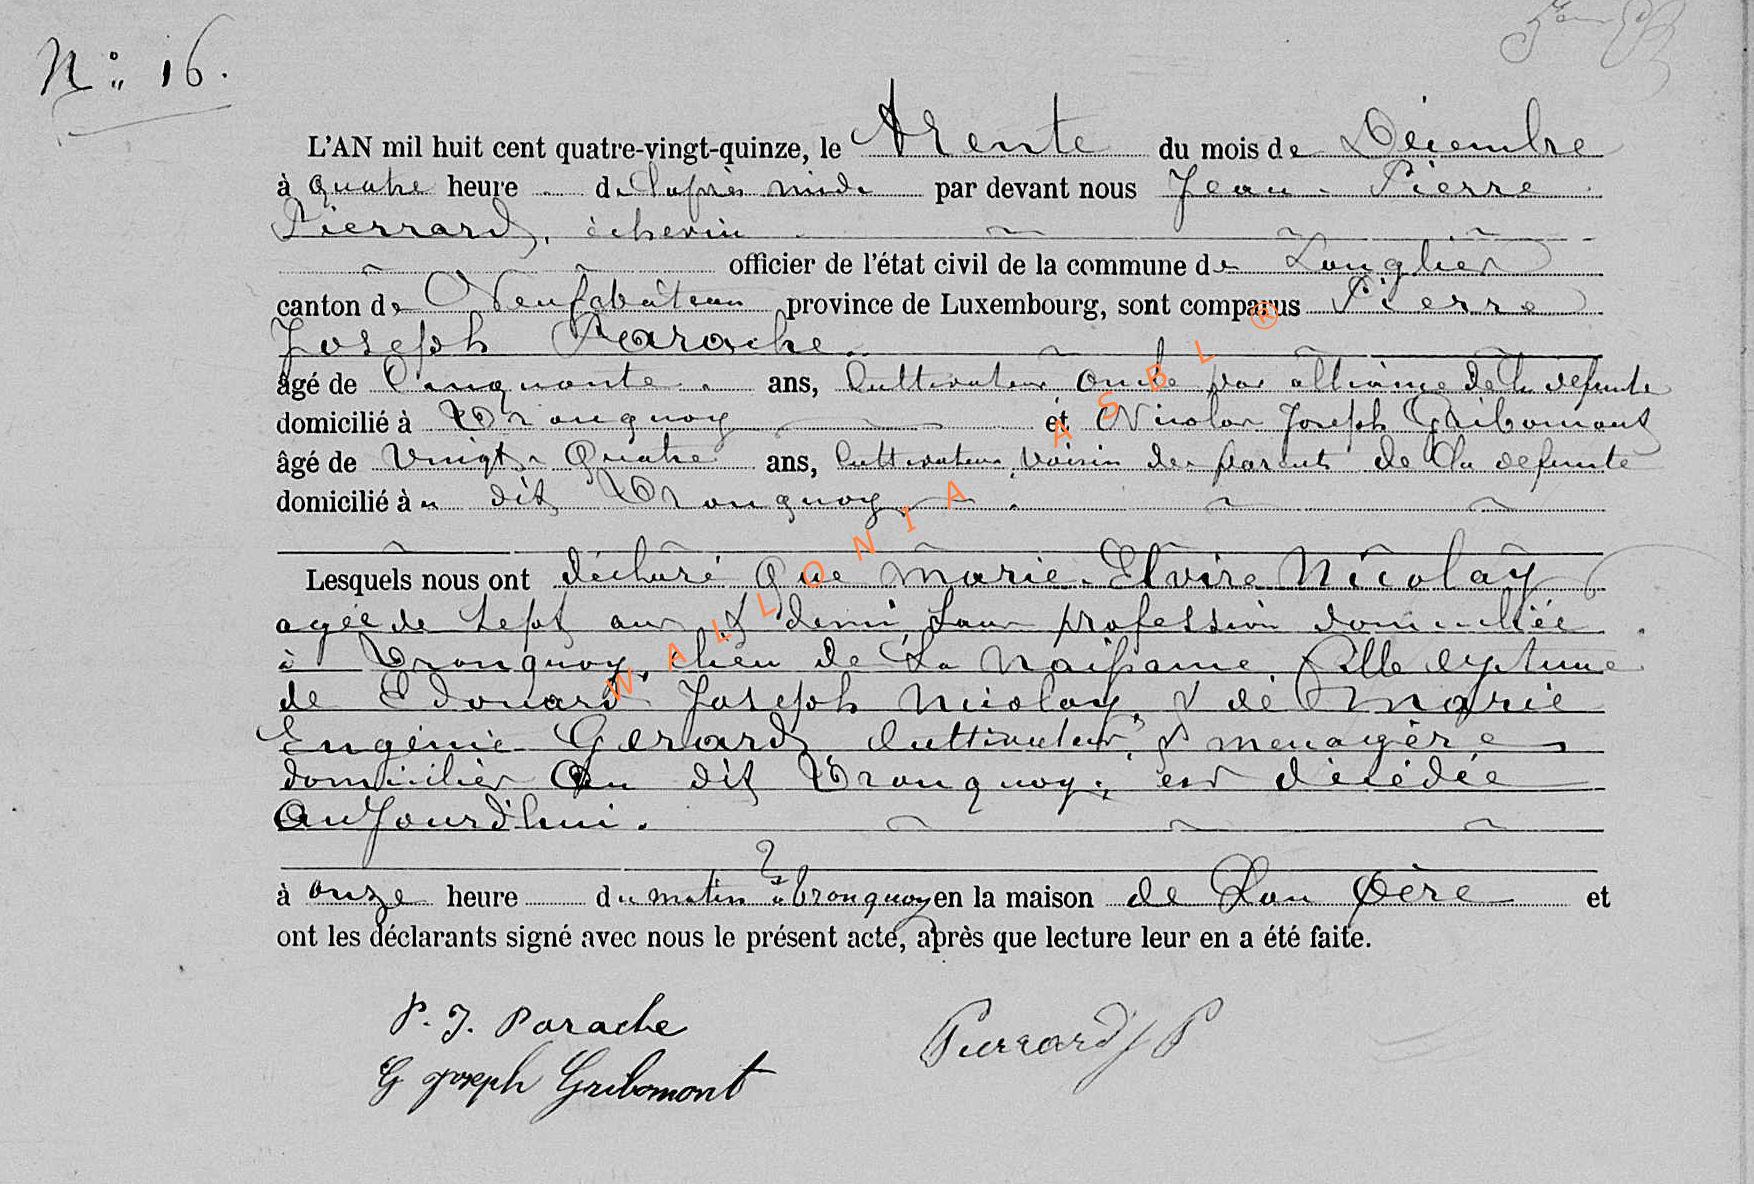 N° 16.
L'AN mil huit cent quatre-vingt-quinze, le trente du mois de Décembre
à quatre heure de l'après midi par devant nous Jean-Pierre
Pierrard, échevin
officier de l'état civil de la commune de Longlier
canton de Neufchâteau province de Luxembourg, sont comparus Pierre
Joseph Parache.
âgé de Cinquante ans, Cultivateur oncle par alliance de la defunte
domicilié à Tronquoy et Nicolas Joseph Gribomont
âgé de Vingt Quatre ans, Cultivateur, Voisin des parents de la defunte
domicilié à dit Tronquoy.
Lesquels nous ont déclaré Que Marie-Elvire Nicolay
agée de sept ans & demi, sans profession domiciliée
à Tronquoy, lieu de sa naissance, fille légitime
de Edouard Joseph Nicolay & de Marie
Eugénie Gerard, Cultivateur & menagère
domiciliés au dit Tronquoy, est décédée
aujourd'hui.
à onze heure du matin à Tronquoy en la maison de son père et
ont les déclarants signé avec nous le présent acte, après que lecture leur en a été faite.
P. J. Parache
G Joseph Gribomont
Pierrard J P
WALLONIA ASBL ®